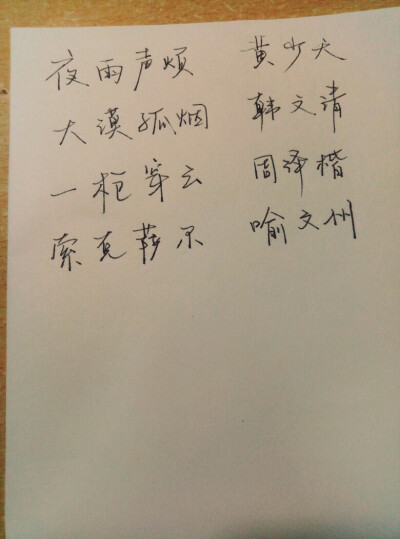 夜雨声烦 黄少天
大漠孤烟 韩文清
一枪穿云 周泽楷
索克萨尔 喻文州